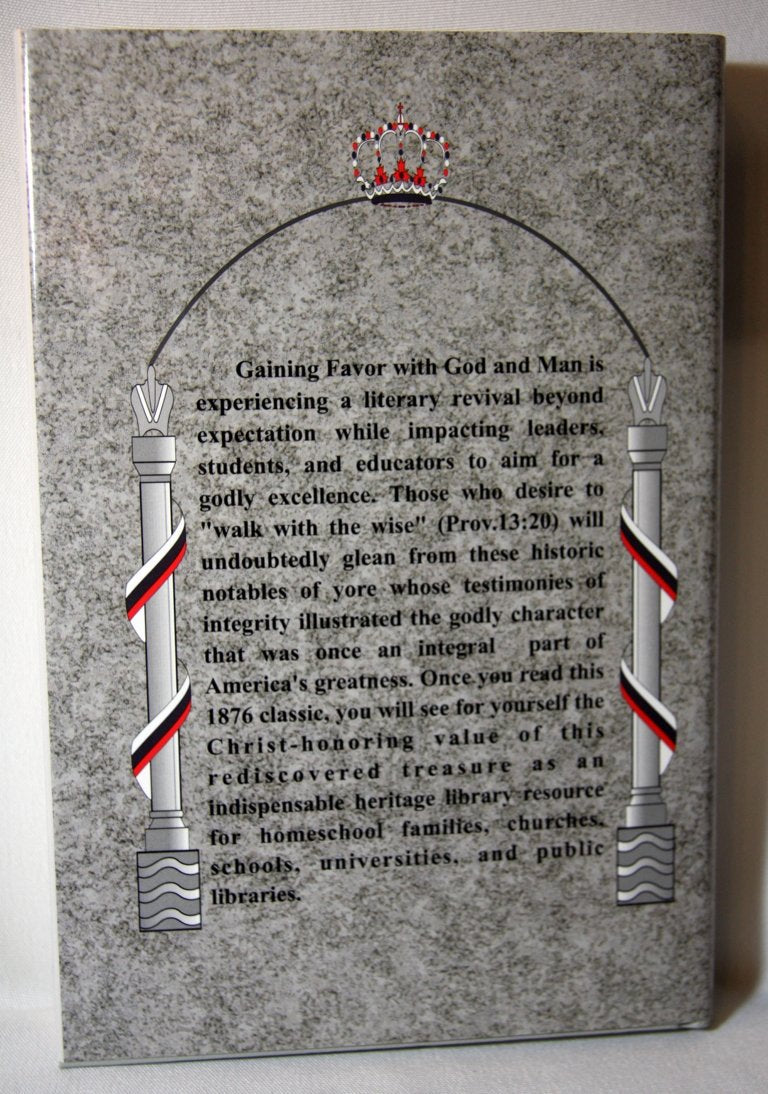 Gaining Favor with God and Man is
experiencing a literary revival beyond
expectation while impacting leaders,
students, and educators to aim for a
godly excellence. Those who desire to
"walk with the wise" (Prov.13:20) will
undoubtedly glean from these historic
notables of yore whose testimonies of
integrity illustrated the godly character
that was once an integral part of
America's greatness. Once you read this
1876 classic, you will see for yourself the
Christ-honoring value of this
rediscovered treasure as an
indispensable heritage library resource
for homeschool families, churches,
schools, universities, and public
libraries.